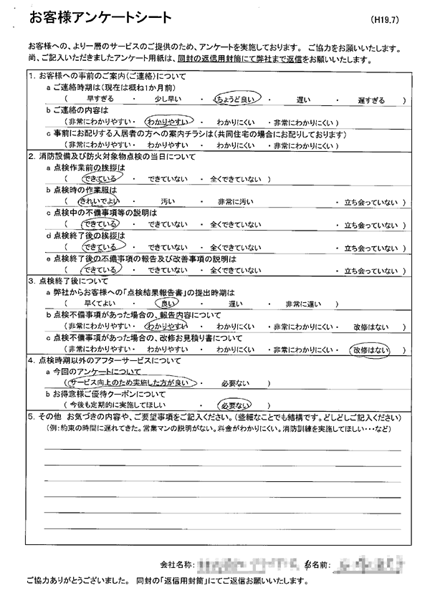 お客様アンケートシート (H19.7)
お客様への、より一層のサービスのご提供のため、アンケートを実施しております。 ご協力をお願いいたします。
尚、ご記入いただきましたアンケート用紙は、同封の返信用封筒にて弊社まで返信をお願いします。
1. お客様への事前のご案内(ご連絡)について
a ご連絡時期は(現在は概ね1か月前)
( 早すぎる ・ 少し早い ・ ちょうど良い ・ 遅い ・ 遅すぎる )
b ご連絡の内容は
(非常にわかりやすい ・ わかりやすい ・ わかりにくい ・非常にわかりにくい )
c 事前にお配りする入居者の方への案内チラシは(共同住宅の場合にお配りしております)
(非常にわかりやすい ・ わかりやすい ・ わかりにくい ・非常にわかりにくい )
2. 消防設備及び防火対象物点検の当日について
a 点検作業前の挨拶は
( できている ・ できていない ・ 全くできていない )
b 点検時の作業服は
( きれいでよい ・ 汚い ・ 非常に汚い ・ 立ち会っていない )
c 点検中の不備事項等の説明は
( できている ・ できていない ・ 全くできていない ・ 立ち会っていない )
d 点検終了後の挨拶は
( できている ・ できていない ・ 全くできていない ・ 立ち会っていない )
e 点検終了後の不備事項の報告及び改善事項の説明は
( できている ・ できていない ・ 全くできていない ・ 立ち会っていない )
3. 点検終了後について
a 弊社からお客様への「点検結果報告書」の提出時期は
( 早くてよい ・ 良い ・ 遅い ・ 非常に遅い )
b 点検不備事項があった場合の、報告内容について
(非常にわかりやすい ・ わかりやすい ・ わかりにくい ・非常にわかりにくい ・ 改修はない )
c 点検不備事項があった場合の、改修お見積り書について
(非常にわかりやすい ・ わかりやすい ・ わかりにくい ・非常にわかりにくい ・ 改修はない )
4. 点検時期以外のアフターサービスについて
a 今回のアンケートについて
(サービス向上のため実施した方が良い ・ 必要ない )
b お得意様ご優待クーポンについて
( 今後も定期的に実施してほしい ・ 必要ない )
5. その他 お気づきの内容や、ご要望事項をご記入ください。(些細なことでも結構です。どしどしご記入ください)
(例:約束の時間に遅れてきた。営業マンの説明がない。料金がわかりにくい。消防訓練を実施してほしい・・・など)
会社名称: お名前:
ご協力ありがとうございました。 同封の「返信用封筒」にてご返信お願いいたします。